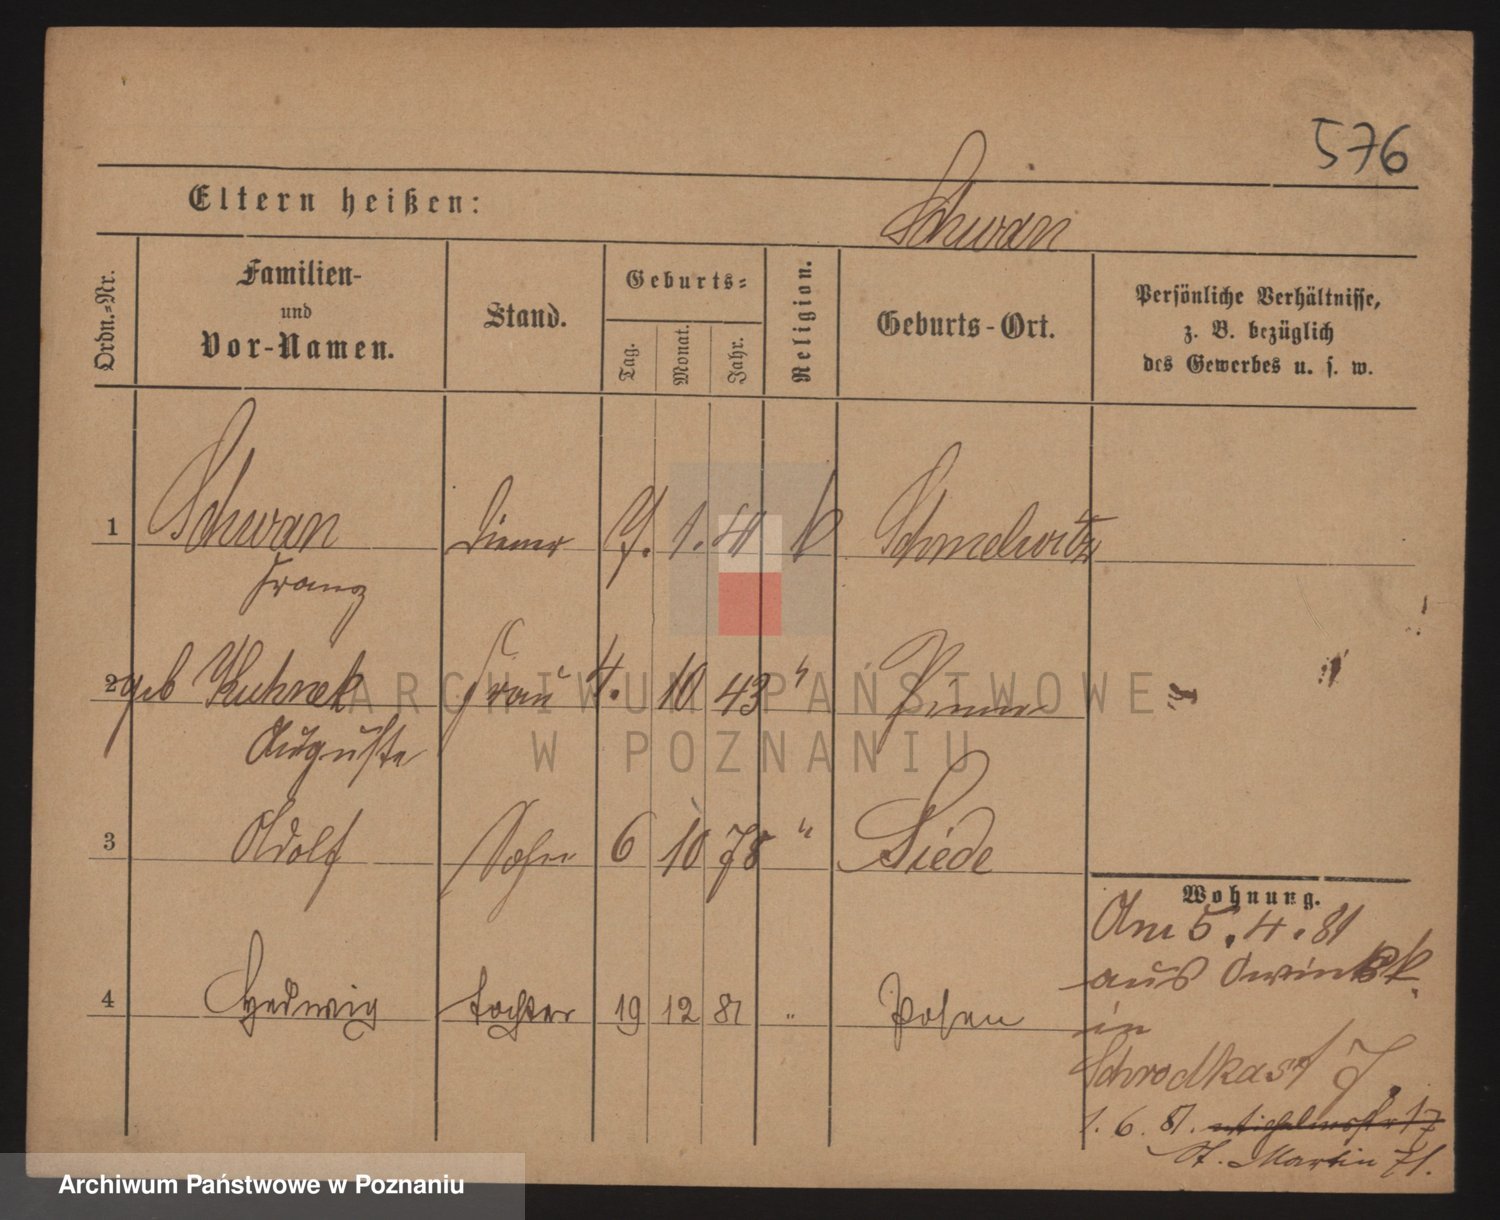 576
Eltern heißen:
Schwan
Ordn.-Nr.
Familien-
und
Vor-Namen.
Stand.
Geburts-
Tag.
Monat.
Jahr.
Religion.
Geburts-Ort.
Persönliche Verhältnisse,
z. B. bezüglich
des Gewerbes u. s. w.
1 Schwan Diener 9. 1. 41 k Schmelwitz
Franz
2 geb Kuhnek Frau 4. 10 43 " Pinne
Auguste
3 Adolf Sohn 6 10 78 " Siede
4 Hedwig Tochter 19 12 81 " Posen
Wohnung.
Am 5. 4. 81
aus Owinsk
in
Schrodkast 7.
1. 6. 81. Wilhelmstr 17
St. Martin 71.
ARCHIWUM PAŃSTWOWE
W POZNANIU
Archiwum Państwowe w Poznaniu